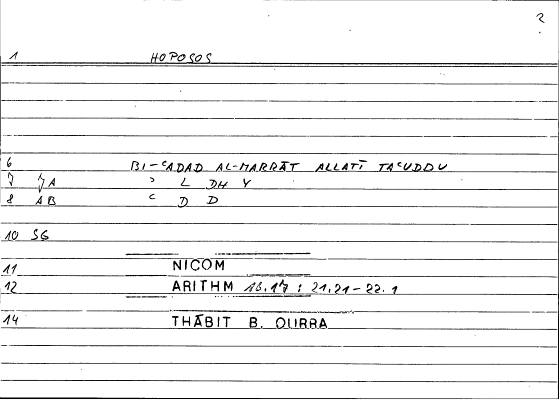 2
1 HOPOSOS
6 BI-ʿADAD AL-MARRĀT ALLATĪ TAʿUDDU
7 JA ʾ L DH Y
8 AB ʿ D D
10 SG
11 NICOM
12 ARITHM 16.17 : 21.21-22.1
14 THĀBIT B. QURRA